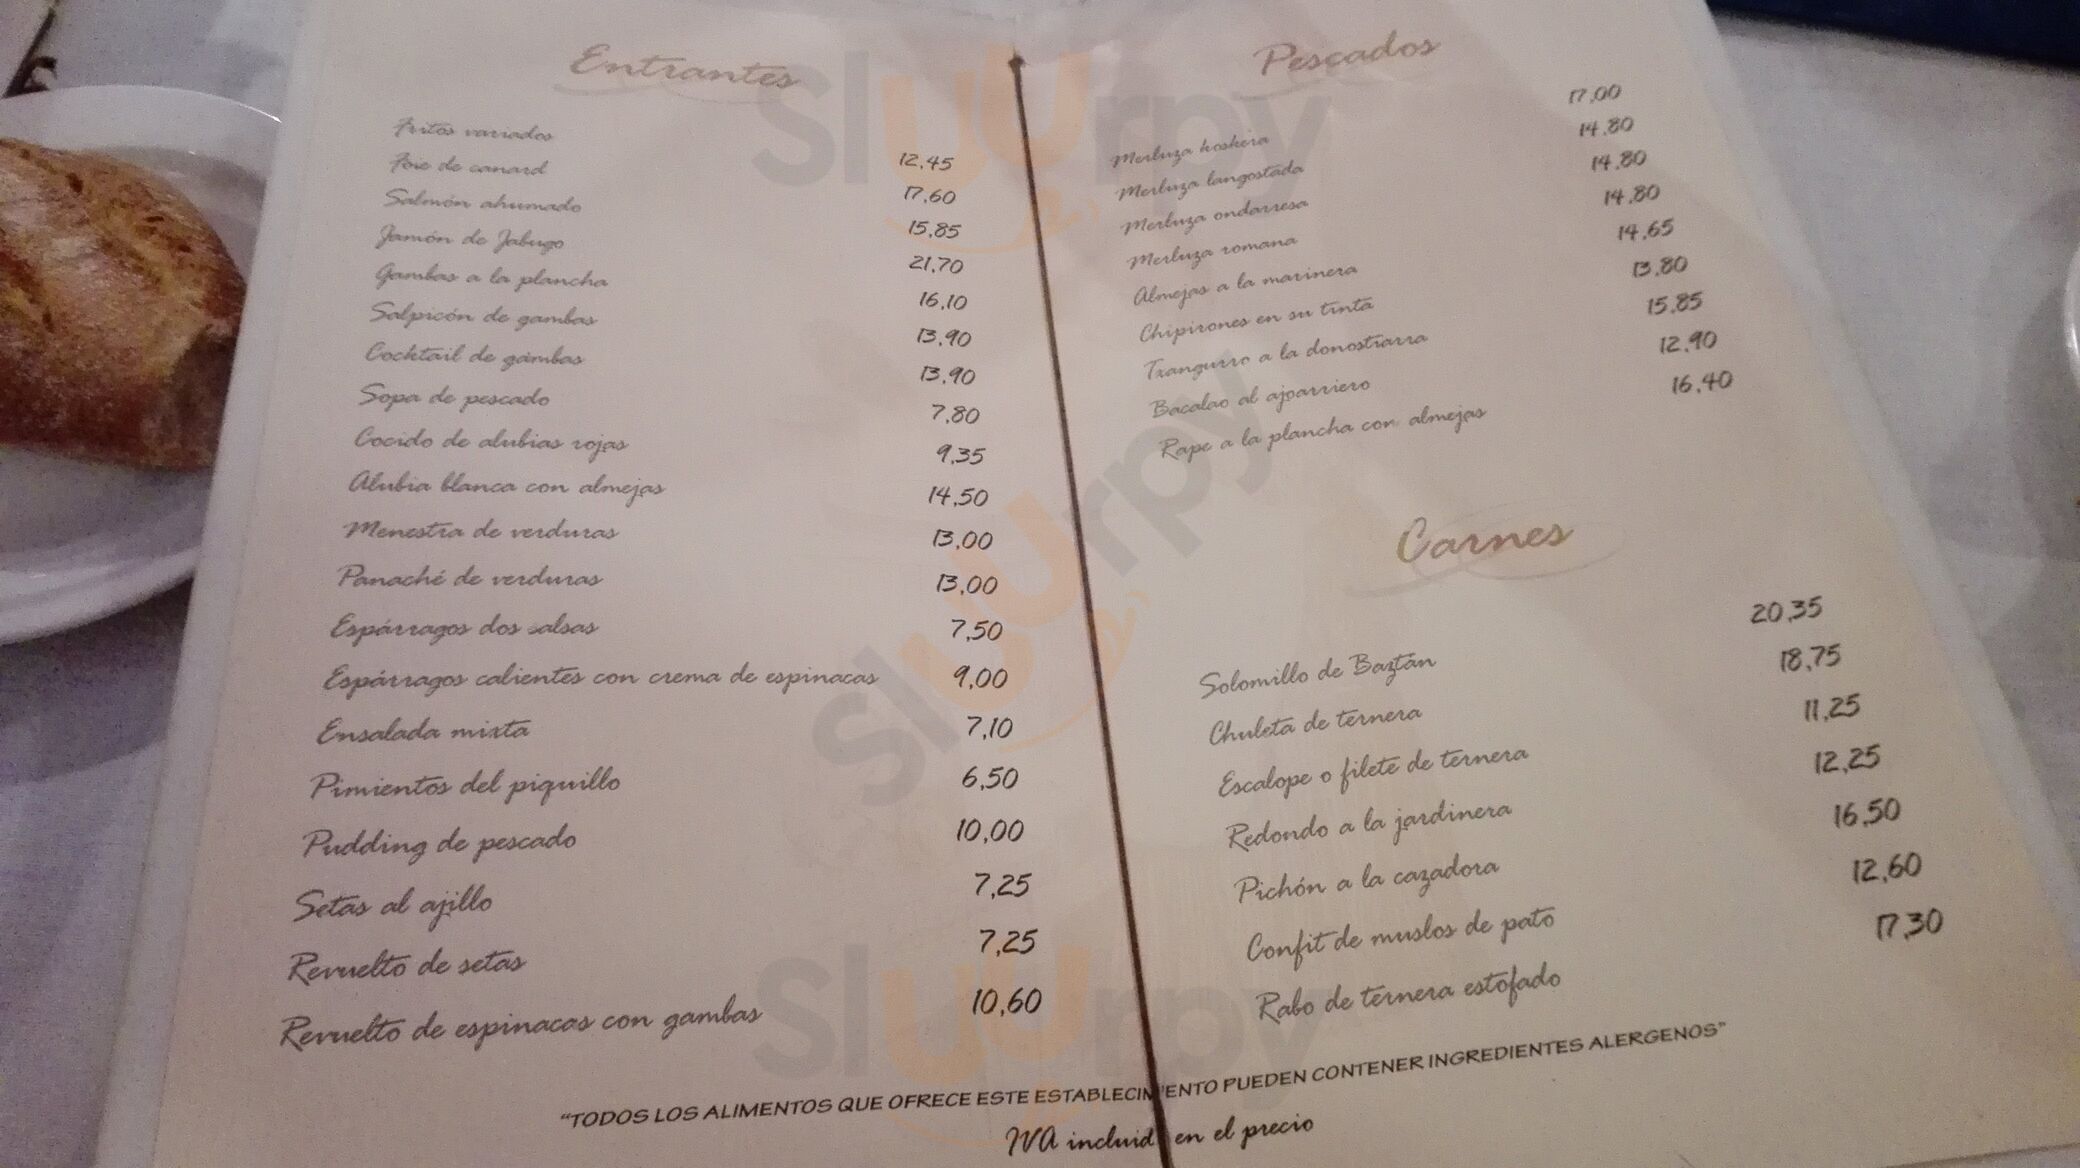 Entrantes
Fritos variados 12,45
Foie de canard 17,60
Salmón ahumado 15,85
Jamón de Jabugo 21,70
Gambas a la plancha 16,10
Salpicón de gambas 13,90
Cocktail de gambas 13,90
Sopa de pescado 7,80
Cocido de alubias rojas 9,35
Alubia blanca con almejas 14,50
Menestra de verduras 13,00
Panaché de verduras 13,00
Espárragos dos salsas 7,50
Espárragos calientes con crema de espinacas 9,00
Ensalada mixta 7,10
Pimientos del piquillo 6,50
Pudding de pescado 10,00
Setas al ajillo 7,25
Revuelto de setas 7,25
Revuelto de espinacas con gambas 10,60
Pescados
Merluza koskera 17,00
Merluza langostada 14,80
Merluza ondarresa 14,80
Merluza romana 14,80
Almejas a la marinera 14,65
Chipirones en su tinta 13,80
Txangurro a la donostiarra 15,85
Bacalao al ajoarriero 12,90
Rape a la plancha con almejas 16,40
Carnes
Solomillo de Baztán 20,35
Chuleta de ternera 18,75
Escalope o filete de ternera 11,25
Redondo a la jardinera 12,25
Pichón a la cazadora 16,50
Confit de muslos de pato 12,60
Rabo de ternera estofado 17,30
"TODOS LOS ALIMENTOS QUE OFRECE ESTE ESTABLECIMIENTO PUEDEN CONTENER INGREDIENTES ALERGENOS"
IVA incluido en el precio
Sluurpy
Sluurpy
Sluurpy
Sluurpy